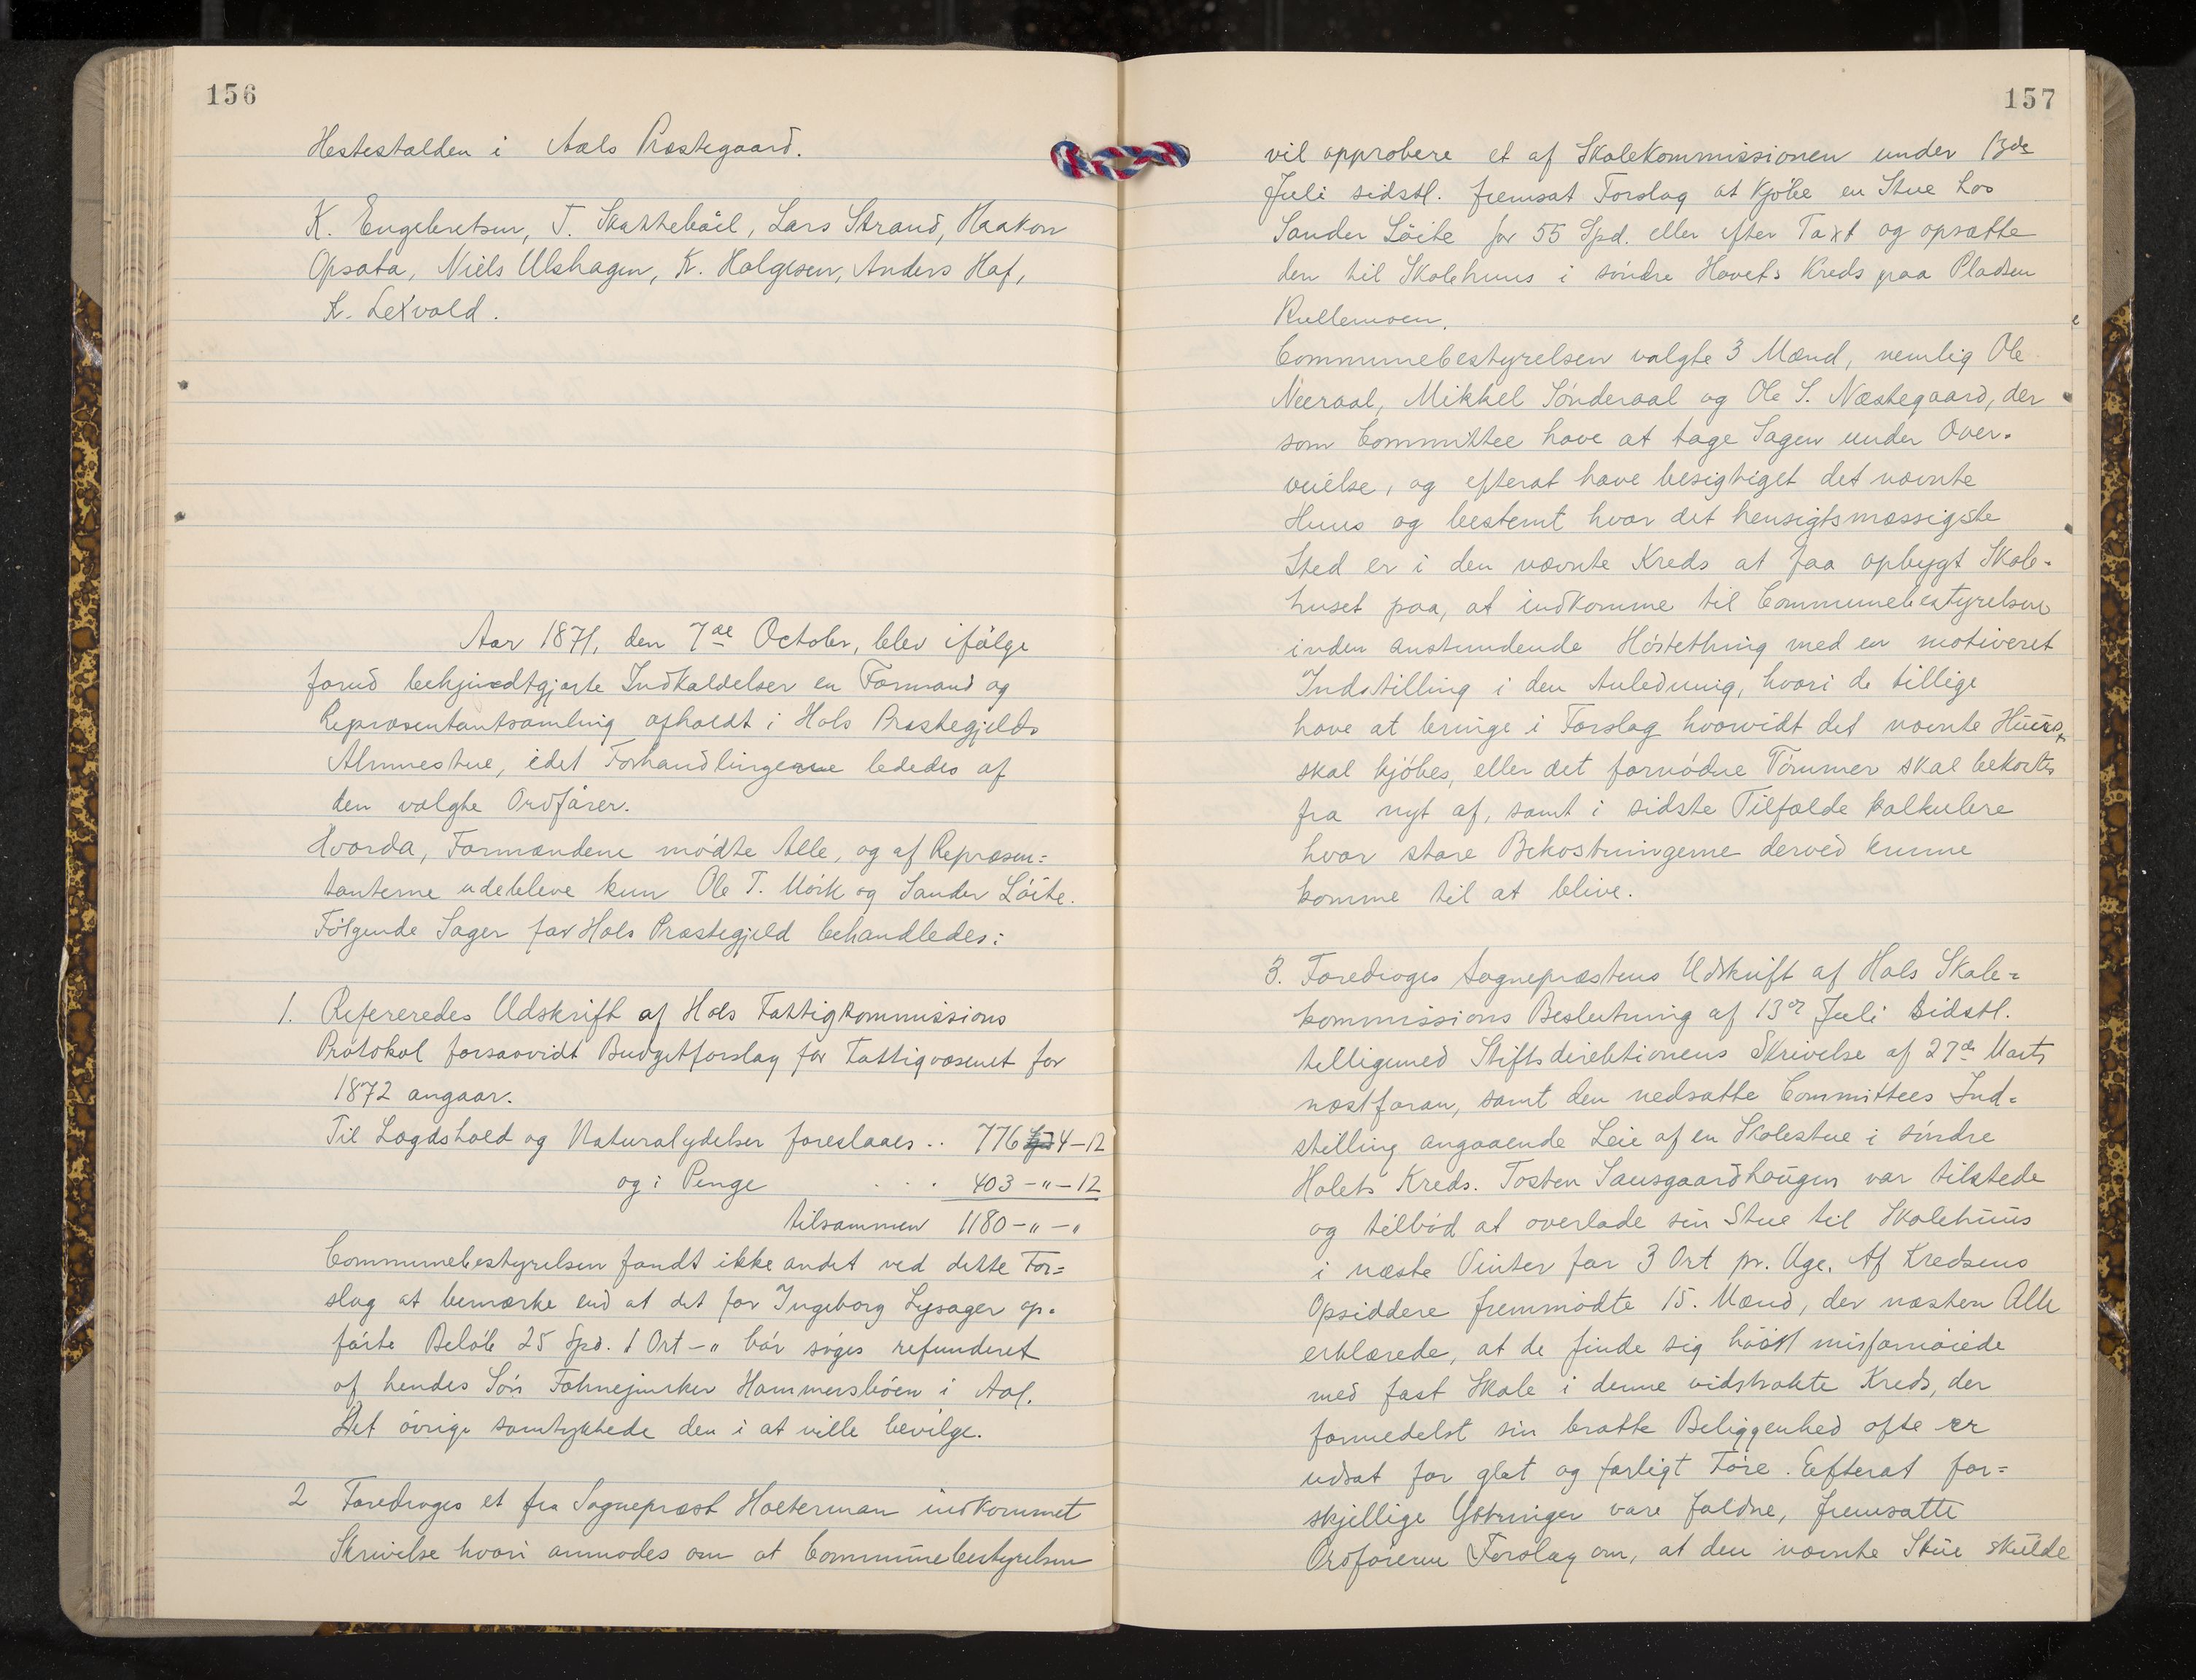 156
Hestestalden i Aals Præstegaard.
K. Engebretsen, T. Skattebøil, Lars Strand, Haakon
Opsata, Niels Ulshagen, K. Holgesen, Anders Haf,
K. Lexvold.
Aar 1871, den 7de October, blev ifølge
forud bekjendtgjorte Indkaldelser en Formand og
Repræsentantsamling afholdt i Hols Præstegjelds
Almuestue, idet Forhandlingerne lededes af
den valgte Ordfører.
Hvorda, Formændene mødte Alle, og af Repræsen=
tanterne udebleve kun Ole T. Mørk og Sander Løite.
Følgende Sager for Hols Præstegjeld behandledes:
1. Refereredes Udskrift af Hols Fattigkommissions
Protokol forsaavidt Budgetforslag for Fattigvæsenet for
1872 angaar.
Til Lægdshold og Naturalydelser foreslaaes .. 776 4-12
og i Penge . . . 403 - " - 12
tilsammen 1180 - " - "
Communebestyrelsen fandt ikke andet ved dette For=
slag at bemærke end at det for Ingeborg Lysager op=
førte Beløb 25 Spd. 1 Ort - " bør søges refunderet
af hendes Søn Fahnejunker Hammersbøen i Aal.
Det øvrige samtykkede den i at ville bevilge.
2 Foredroges et fra Sognepræst Holterman indkommet
Skrivelse hvori anmodes om at Communebestyrelsen
157
vil approbere et af Skolekommissionen under 13de
Juli sidstl. fremsat Forslag at kjøbe en Stue hos
Sander Løite for 55 Spd. eller efter Taxt og opsætte
den til Skolehuus i søndre Hovets Kreds paa Pladsen
Rullemoen.
Communebestyrelsen valgte 3 Mænd, nemlig Ole
Neeraal, Mikkel Sønderaal og Ole S. Næstegaard, der
som Committee have at tage Sagen under Over=
veielse, og efterat have besigtiget det nævnte
Huus og bestemt hvor det hensigtsmæssigste
Sted er i den nævnte Kreds at faa opbygt Skole=
huset paa, at indkomme til Communebestyrelsen
inden anstundende Høstething med en motiveret
Indstilling i den Anledning, hvori de tillige
have at bringe i Forslag hvorvidt det nævnte Huus
skal kjøbes, eller det fornødne Tømmer skal bekostes
fra nyt af, samt i sidste Tilfælde kalkulere
hvor store Bekostningerne derved kunne
komme til at blive.
3. Foredroges Sognepræstens Udskrift af Hols Skole=
kommissions Beslutning af 13de Juli sidstl.
telligemed Stiftsdirektionens Skrivelse af 27de Marts
næstforan, samt den nedsatte Committees Ind=
stilling angaaende Leie af en Skolestue i søndre
Holets Kreds. Tosten Sausgaardhaugen var tilstede
og tilbød at overlade sin Stue til Skolehuus
i næste Vinter for 3 Ort pr. Uge. Af Kredsens
Opsiddere fremmødte 15. Mænd, der næsten Alle
erklærede, at de finde sig høist misfornøiede
med fast Skole i denne vidstrakte Kreds, der
formedelst sin bratte Beliggenhed ofte er
udsat for glat og farligt Føre. Eefterat for=
skjellige Ytringer vare faldne, fremsatte
Ordføreren Forslag om, at den nævnte Stue skulde